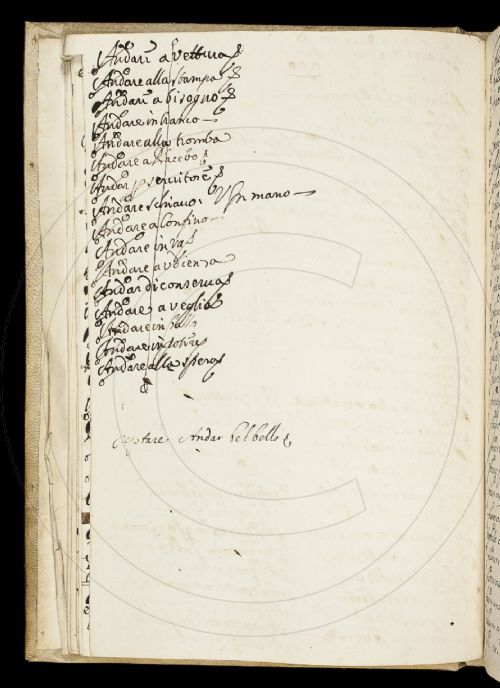 Andare a vettura
Andare alla stampa
Andare a bisogno
Andare in banco
Andare alla tromba
Andare a
Andar per servitore
Andare schiavo. V. In mano
Andare a Confino
Andare in
Andare a vdienza
Andar di conserva
Andare a veglia
Andare in
Andare in
Andare alle
&
Andar bel bello